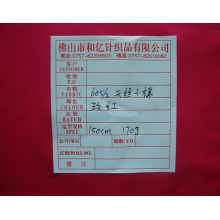 佛山市和亿针织品有限公司
电话:0757-82206803 传真:0757-82516082
客户
CUSTOMER
批号
P.O
布类
FABRIC 60S/2 天丝斗梯
颜色
COLOUR 玫红
缸号
BATCH
定型规格
SPEC 150cm 170g
公斤/KG: 码数(YD):
疋数ROLL NO.
备注